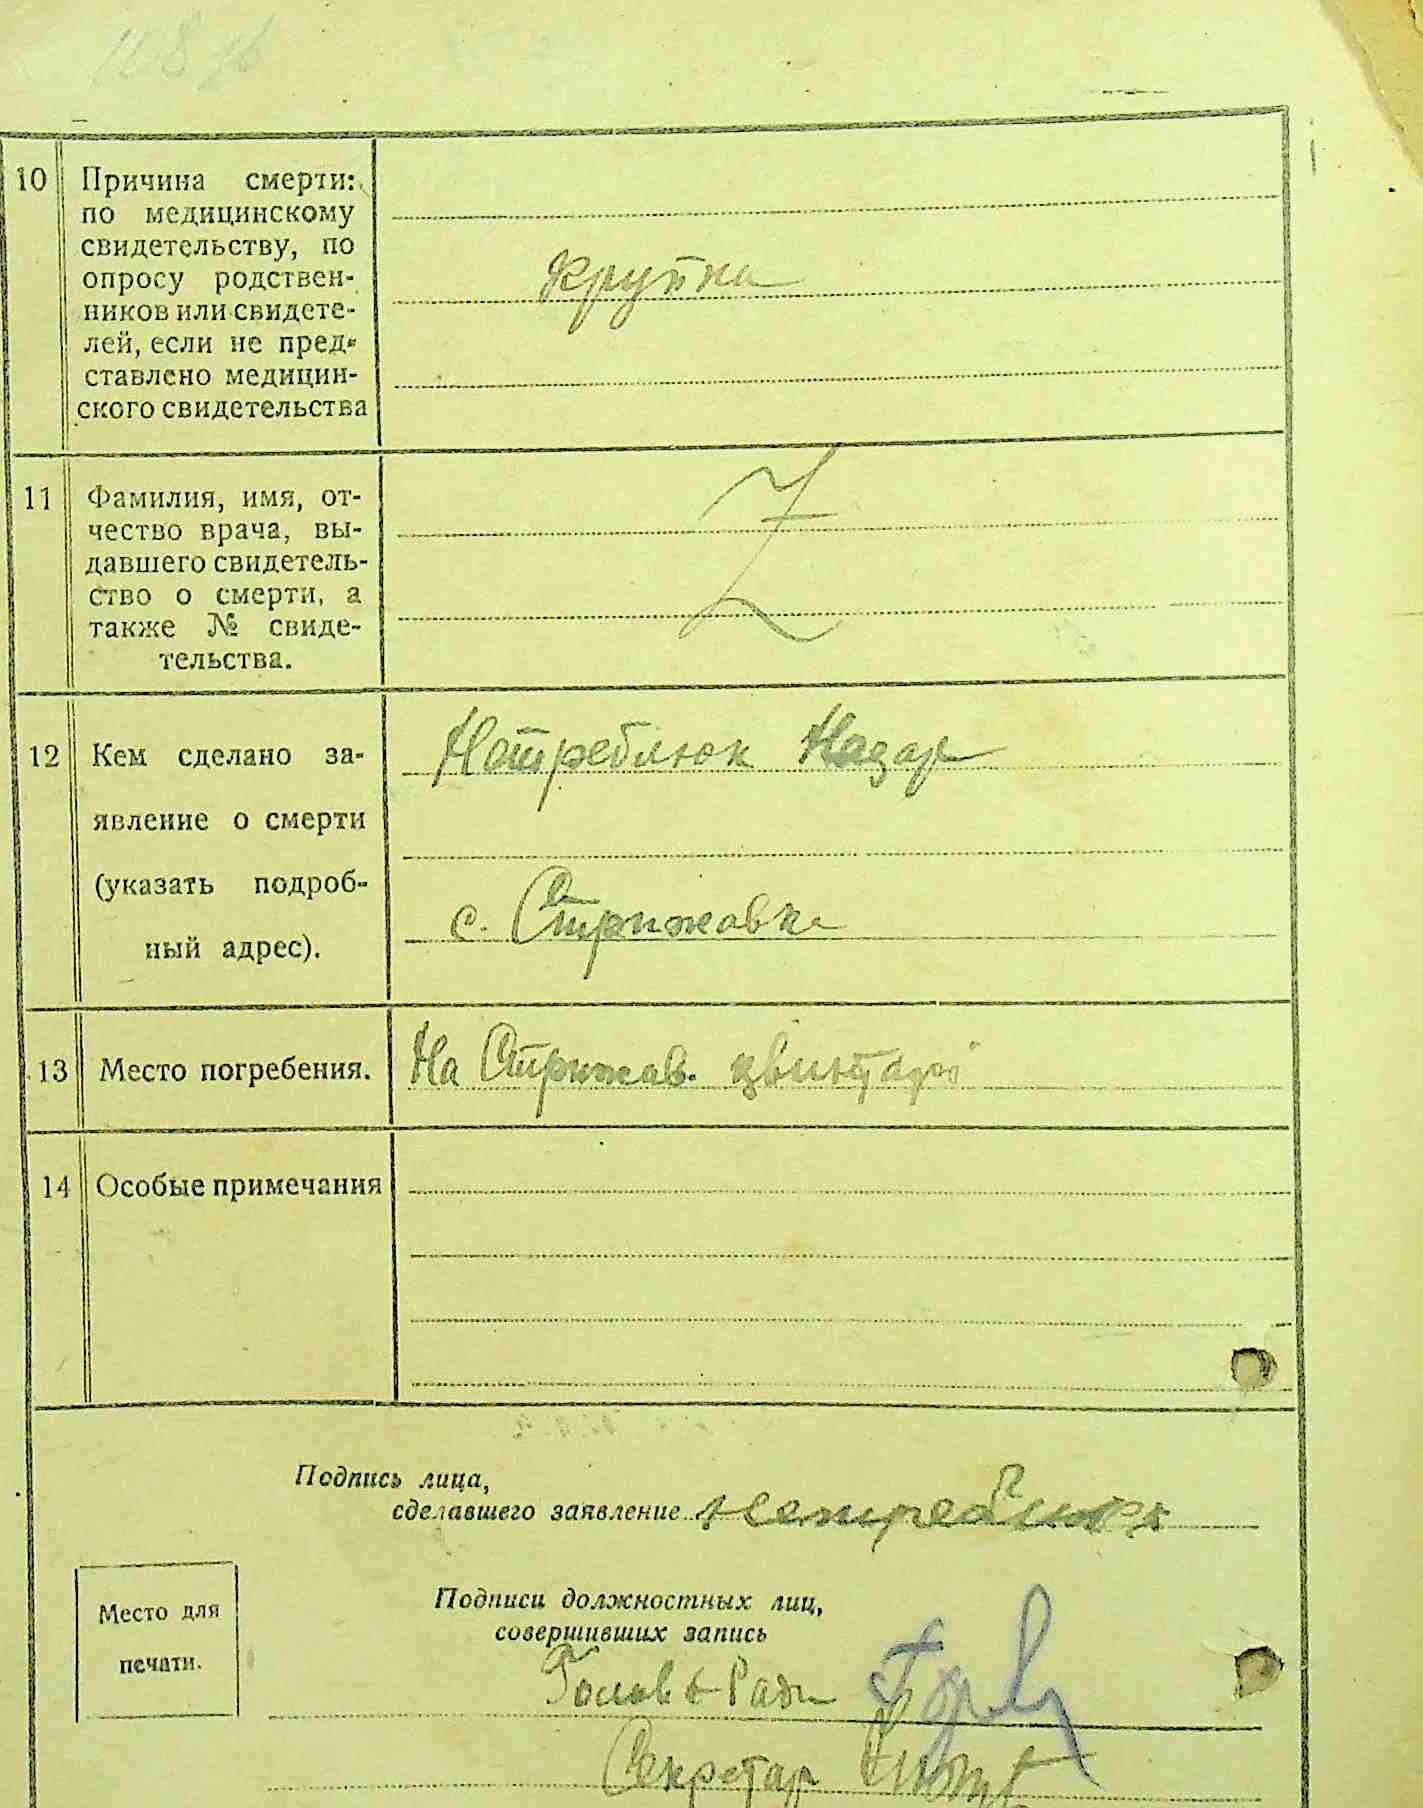 10 Причина смерти:
по медицинскому
свидетельству, по
опросу родствен-
ников или свидете-
лей, если не пред-
ставлено медицин-
ского свидетельства
крупка
11 Фамилия, имя, от-
чество врача, вы-
давшего свидетель-
ство о смерти, а
также № свиде-
тельства.
Z
12 Кем сделано за-
явление о смерти
(указать подроб-
ный адрес).
Нетреблюк Назар
с. Стрижовка
13 Место погребения.
На Стрижав. цвинтарі
14 Особые примечания
Подпись лица,
сделавшего заявление Нетреблюк
Место для
печати.
Подписи должностных лиц,
совершивших запись
Голова с-Ради
Секретар